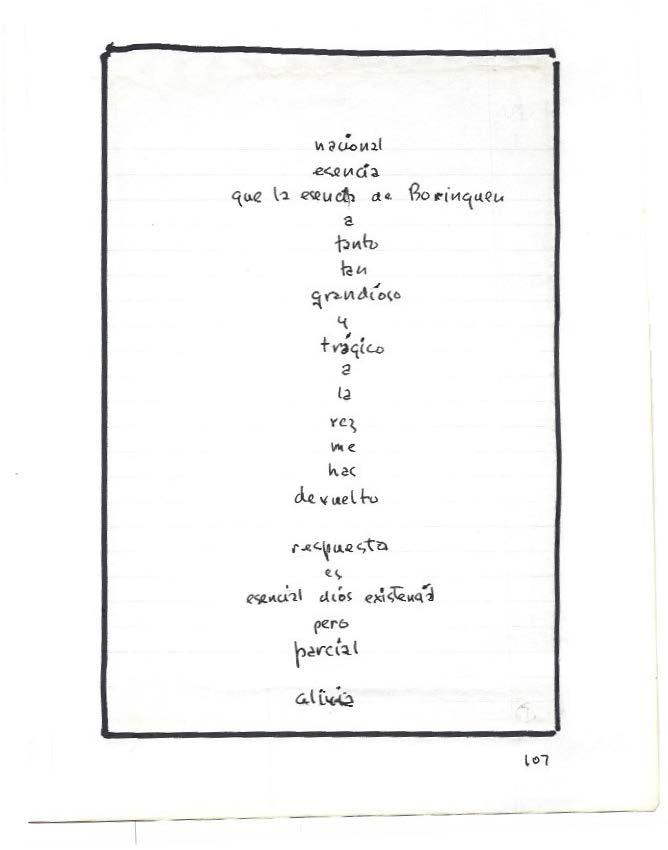 nacional
esencia
que la esencia de Borinquen
a
tanto
tan
grandioso
y
trágico
a
la
vez
me
has
devuelto
respuesta
es
esencial dios existencial
pero
parcial
alivia
107